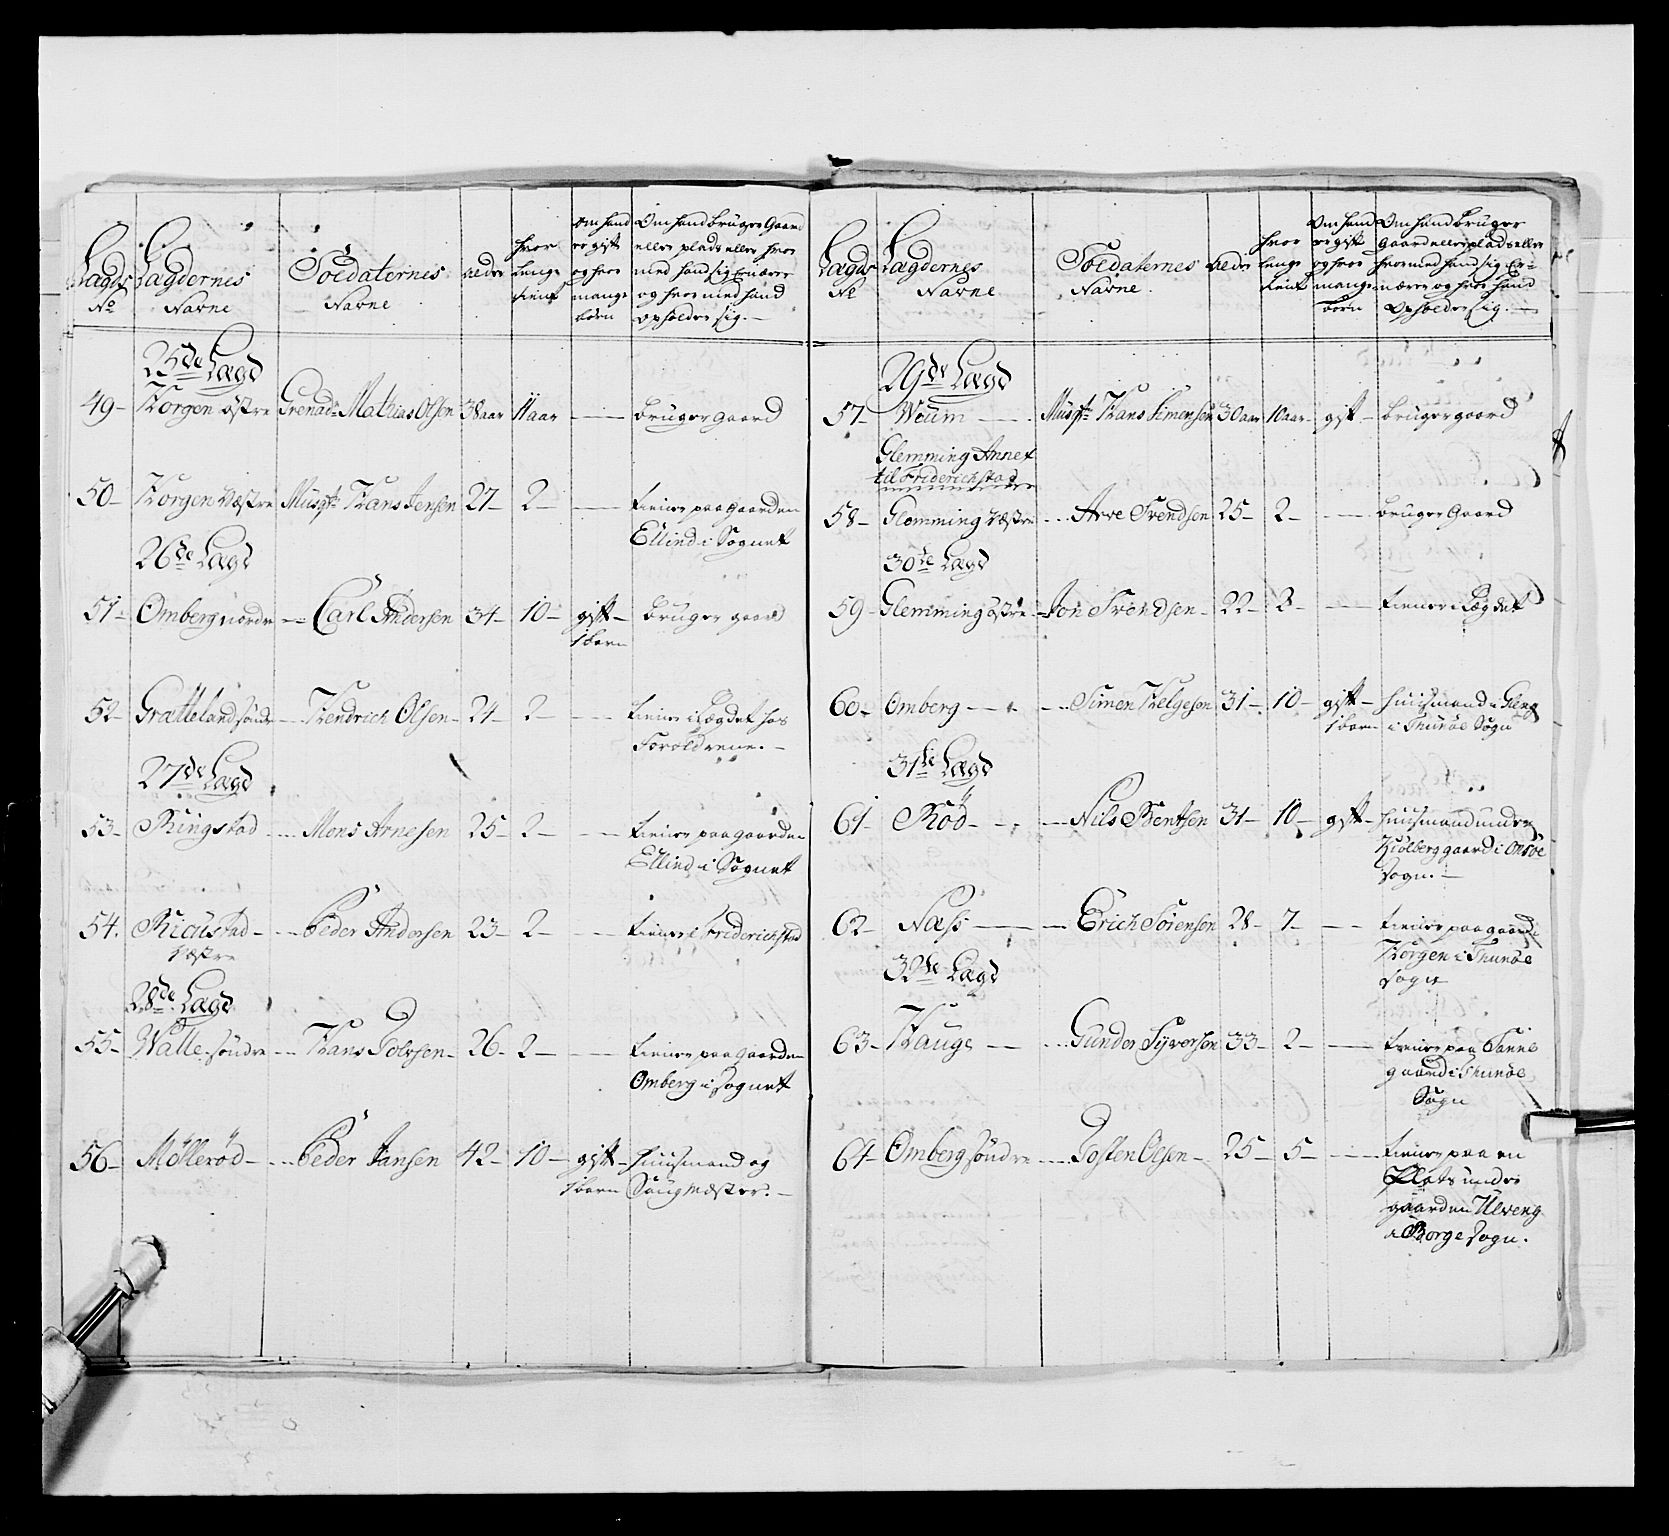 Lægds No
Lægdernes Navne
Soldaternes Navne
Alder
hvor lenge tient
Om hand er gift og hvor mange børn
Om hand bruger Gaard eller plads eller hvor med hand sig Ernærer og hvor med hand opholder sig. —
25de Lægd
49- Korgen østre Grenadr Mathias Olsen 38 aar 11 aar — bruger gaard
50- Korgen Vestre Musqtr Hans Jensen 27- 2- — tiener paa gaarden
Ellind i Sognet
26de Lægd
51- Omberg nordre --- Carl Andersen 34- 10- gift- bruger gaard
1 barn
52- Grætteland søndr --- Hendrich Olsen- 24- 2- — tiener i Lægdet hos
Foreldrene. —
27de Lægd
53- Ringstad --- Mons Arnesen 25- 2- — tiener paa gaarden
Ellind i Sognet
54. Riaustad- --- Peder Andersen 23- 2- — tiener i Friderichstad
Vestre
28de Lægd
55- Walle søndre --- Hans Tolvsen- 26- 2- — tiener paa gaarden
Omberg i Sognet
56- Møllerød- --- Peder Hansen 42- 10- gift- huusmand og
1 barn Saugmester. —
Lægds No
Lægdernes Navne
Soldaternes Navne.
Alder
hvor lenge tient
Om hand er gift og hvor mange børn
Om hand bruger Gaard eller plads eller hvor med hand sig Er- nærer og hvor hand opholder sig. —
29de Lægd
57- Weum --- Musqtr Hans Simensen 30 aar 10 aar- gift- bruger gaard
Glemming Annex
til Friderichstad
58- Glemming Vestre --- Arve Svendsen 25- 2- — bruger Gaard
30te Lægd
59- Glemming østre- Jon Svendsen- 22- 3- — tiener i Lægdet
60- Omberg --- Simen Helgesen 31- 10- gift- huusmand i Gleng
1 barn- i Thunøe Sogn
31te Lægd
61- Rød --- Nils Bentsen 31- 10- gift- huusmand under
Kiølberg gaard i Onsøe
Sogn. —
62- Næss --- Erich Sørensen 28- 7- — tiener paa gaard
Korgen i Thunøe
Sogn
32te Lægd
63- Hauge --- Gunder Syversen 33- 2- — tiener paa
gaard i Thunøe
Sogn
64- Omberg søndre --- Josten Olsen- 25- 5- — tiener paa en
Plads under
gaarden Ulveng
i Borge Sogn.